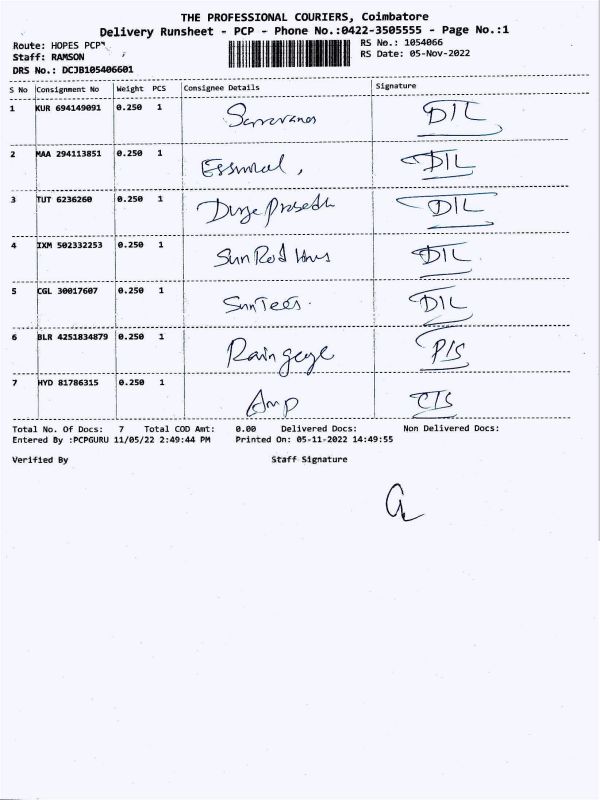 THE PROFESSIONAL COURIERS, Coimbatore
Delivery Runsheet - PCP - Phone No.:0422-3505555 - Page No.:1
Route: HOPES PCP
RS No.: 1054066
Staff: RAMSON
RS Date: 05-Nov-2022
DRS No.: DCJB105406601
S No Consignment No Weight PCS Consignee Details Signature
1 KUR 694149091 0.250 1 D/L
2 MAA 294113851 0.250 1 D/L
3 TUT 6236260 0.250 1 D/L
4 IXM 502332253 0.250 1 Sun Red D/L
5 CGL 30017607 0.250 1 SunTees. D/L
6 BLR 4251834879 0.250 1 Rain P/S
7 HYD 81786315 0.250 1 Amp
Total No. Of Docs: 7 Total COD Amt: 0.00 Delivered Docs: Non Delivered Docs:
Entered By :PCPGURU 11/05/22 2:49:44 PM Printed On: 05-11-2022 14:49:55
Verified By Staff Signature